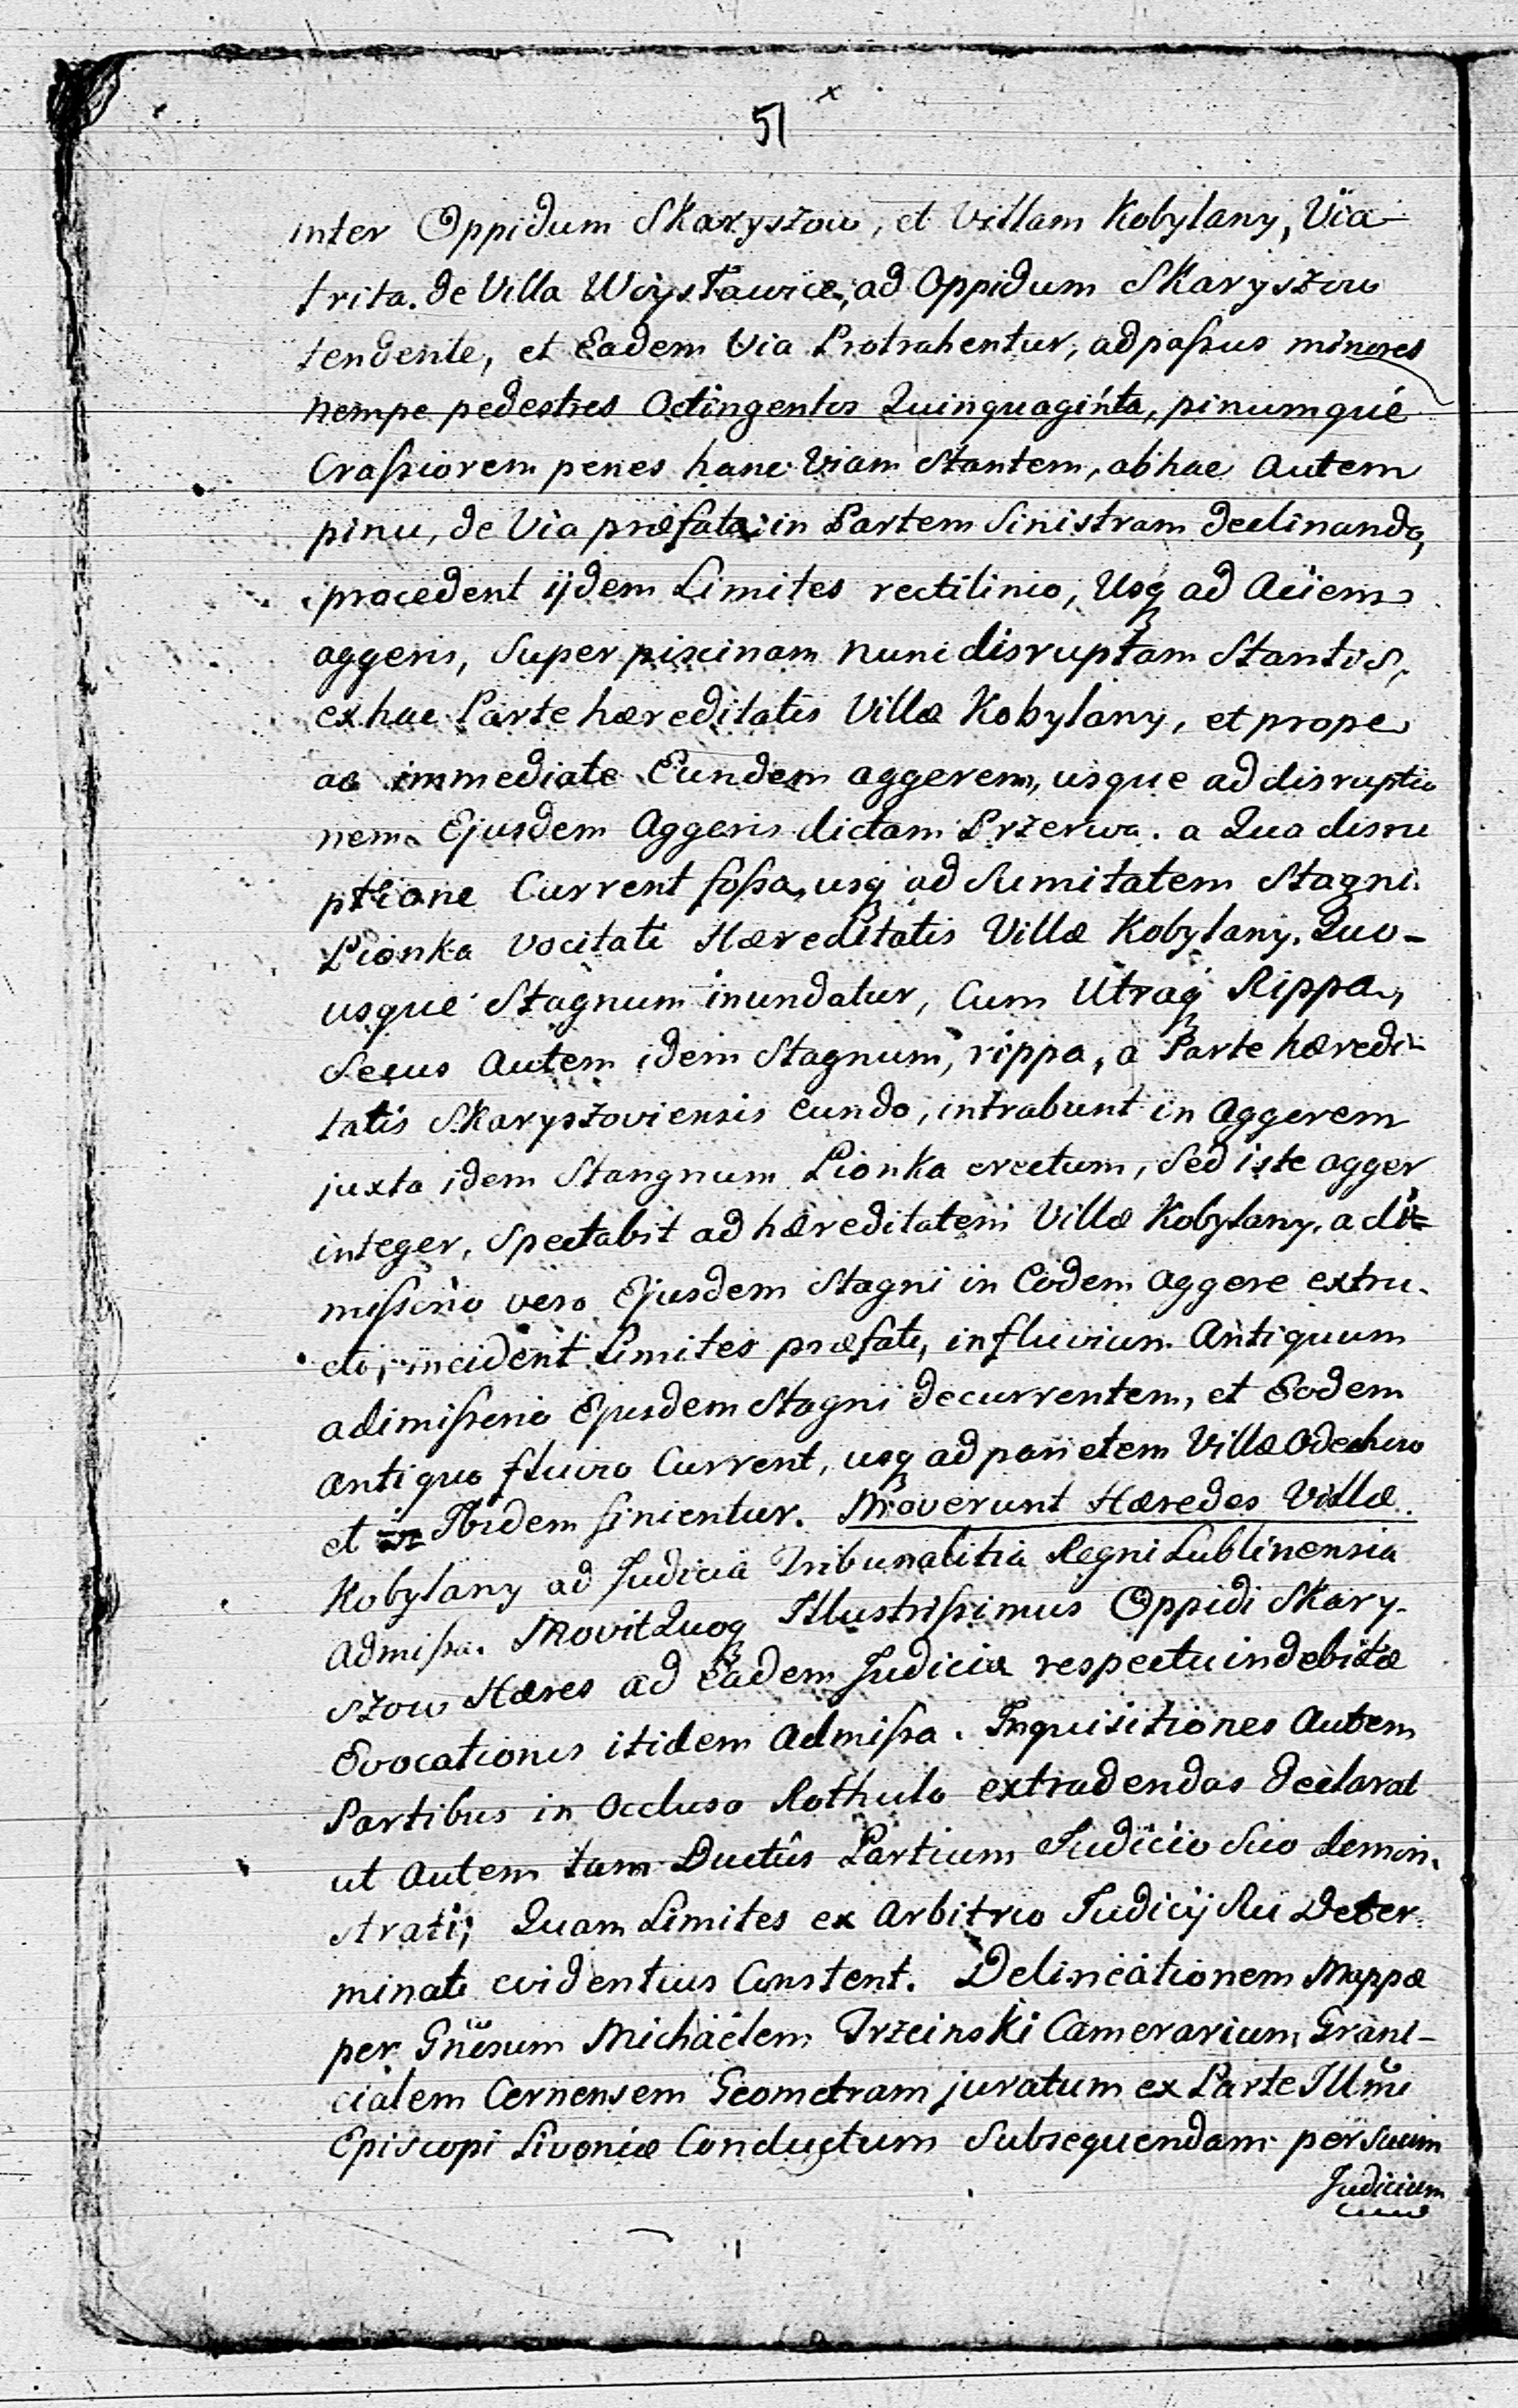 51
inter Oppidum Skaryszow, et Villam Kobylany, Via
trita de Villa Woysławice, ad Oppidum Skaryszow
tendente, et Eadem Via Protrahentur, ad paſsus minores
nempe pedestres Octingentos Quinquaginta, pinumque
Craſsiorem penes hanc Viam Stantem, ab hac Autem
pinu, de Via præfata in Partem Sinistram declinando,
procedent ijdem Limites rectilinio, Usq ad Aciem
aggeris, Super piscinam nunc disruptam Stantis,
ex hac Parte hæreditatis Villæ Kobylany, et prope
ac immediate Eundem aggerem, usque ad disruptio
nem Ejusdem Aggeris dictam Przerwa. a Qua disru
ptione Current foſsa, usq ad Sumitatem Stagni
Lionka vocitati Hæreditatis Villæ Kobylany. Quo-
usque Stagnum inundatur, Cum Utraq Rippa,
Secus Autem idem Stagnum, rippa, a Parte hæredi-
tatis Skaryszoviensis eundo, intrabunt in Aggerem
juxta idem Stangnum Lionka erectum, Sed iste agger
integer, Spectabit ad hæreditatem Villæ Kobylany, a di=
miſsorio vero Ejusdem Stagni in Eodem Aggere extru-
cto, incident Limites præfati, in fluvium Antiquum
a dimiſsorio Ejusdem Stagni decurrentem, et Eodem
Antiquo fluvio Current, usq ad parietem Villæ Odechow
et Ibidem finientur. Moverunt Hæredes Villæ
Kobylany ad Judicia Tribunalitia Regni Lublinensia
Admiſsa. Movit Quoq Illustriſsimus Oppidi Skary-
szow Hæres ad Eadem Judicia respectu indebitæ
Evocationis itidem Admiſsa. Inquisitiones Autem
Partibus in Occluso Rothulo extradendas declarat
ut Autem tam Ductûs Partium Judicio Suo demon-
strati, Quam Limites ex Arbitrio Judicij Sui Deter-
minati evidentius Constent. Delineationem Mappæ
per Gnosum Michaëlem Trzcinski Camerarium Grani-
cialem Cernensem Geometram juratum ex Parte Illmi
Episcopi Livoniæ Conductum Subsequendam per Suum
Judicium